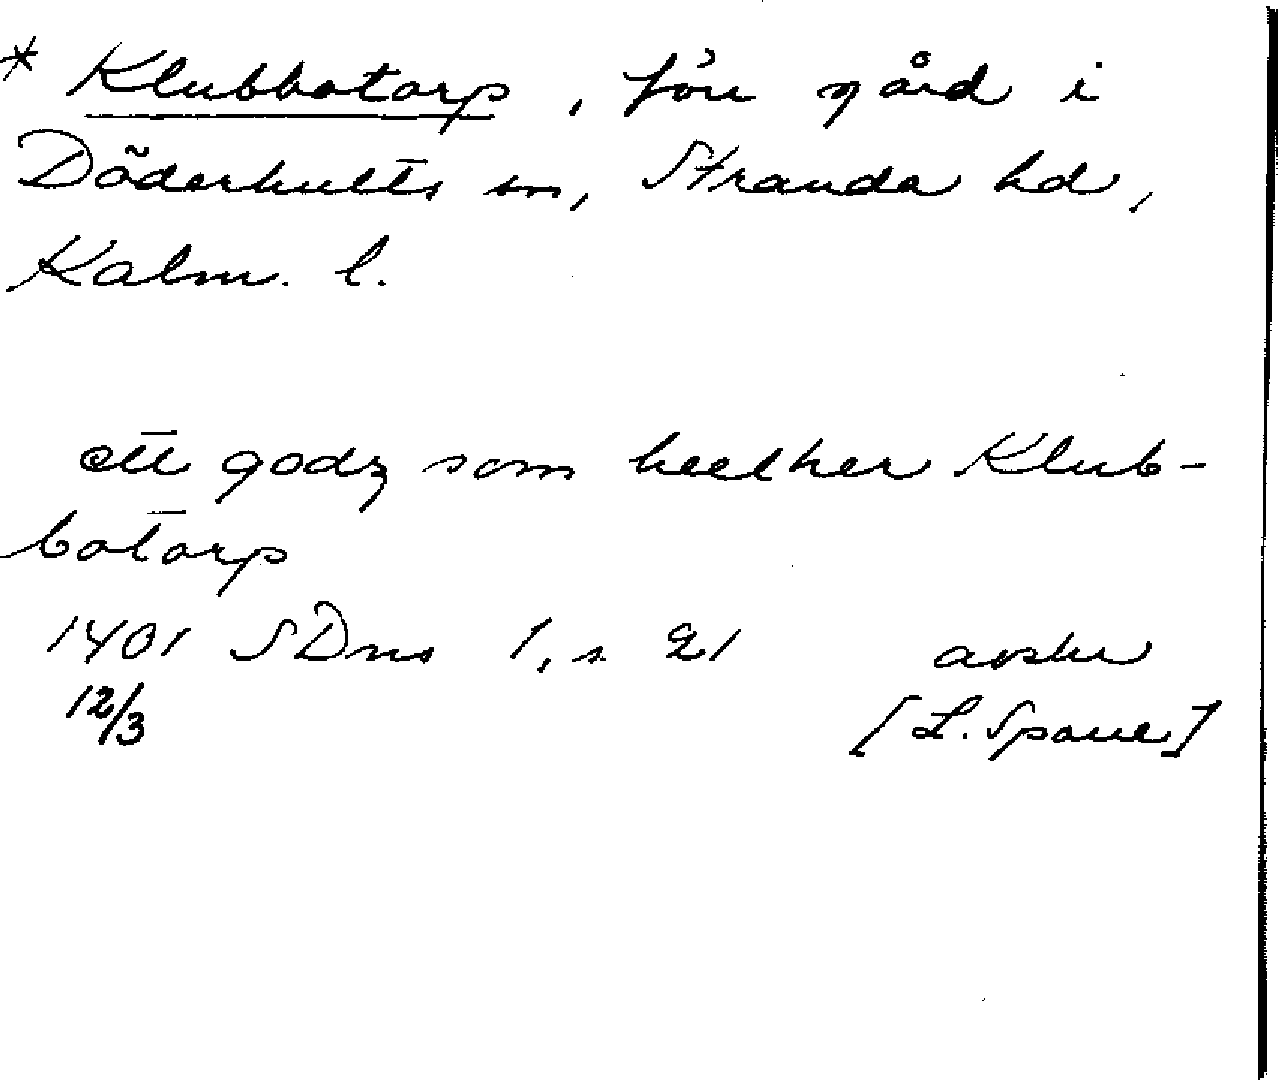 * Klubbotorp, förr gård i
Döderhults sn, Stranda hd,
Kalm. l.
ett godz som heether Klub-
botorp
1401 SDns 1, s 21 avskr
12/3 [L. Spaue]